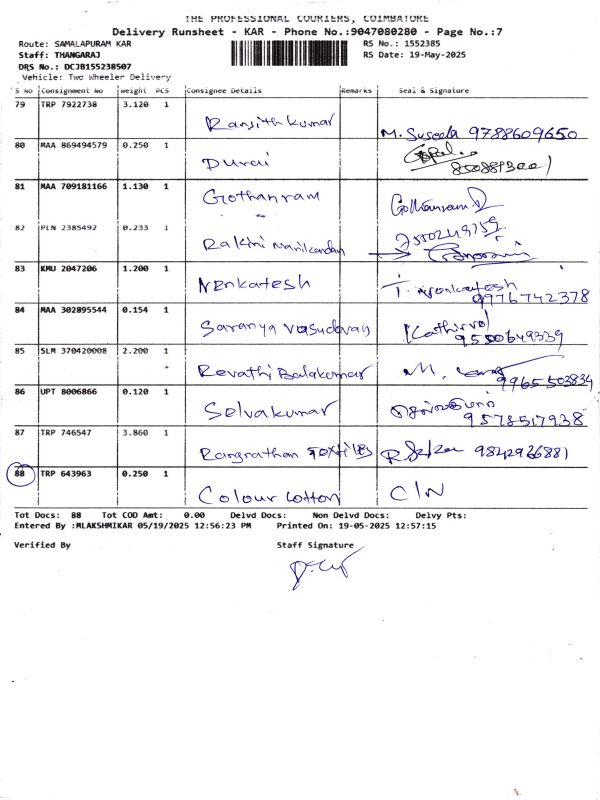 THE PROFESSIONAL COURIERS, COIMBATORE
Delivery Runsheet - KAR - Phone No.:9047080280 - Page No.:7
Route: SAMALAPURAM KAR
RS No.: 1552385
Staff: THANGARAJ
RS Date: 19-May-2025
DRS No.: DCJB155238507
Vehicle: Two Wheeler Delivery
S No Consignment No Weight PCS Consignee Details Remarks Seal & Signature
79 TRP 7922738 3.120 1
Ranjith kumar
M. Suseela 9788609650
80 MAA 869494579 0.250 1
Durai
81 MAA 709181166 1.130 1
Gothanram
82 PLN 2385492 0.233 1
Rakini Manikandan
83 KMU 2047206 1.200 1
Venkatesh
T. Venkatesh
9976742378
84 MAA 302895544 0.154 1
Saranya Vasudevan
9550649339
85 SLM 370420008 2.200 1
Revathi Balakumar
9965503834
86 UPT 8006866 0.120 1
Selvakumar
9578517938
87 TRP 746547 3.860 1
Rangnathan Textiles
9842926881
88 TRP 643963 0.250 1
Colour Cotton
C/N
Tot Docs: 88 Tot COD Amt: 0.00 Delvd Docs: Non Delvd Docs: Delvy Pts:
Entered By :MLAKSHMIKAR 05/19/2025 12:56:23 PM Printed On: 19-05-2025 12:57:15
Verified By
Staff Signature